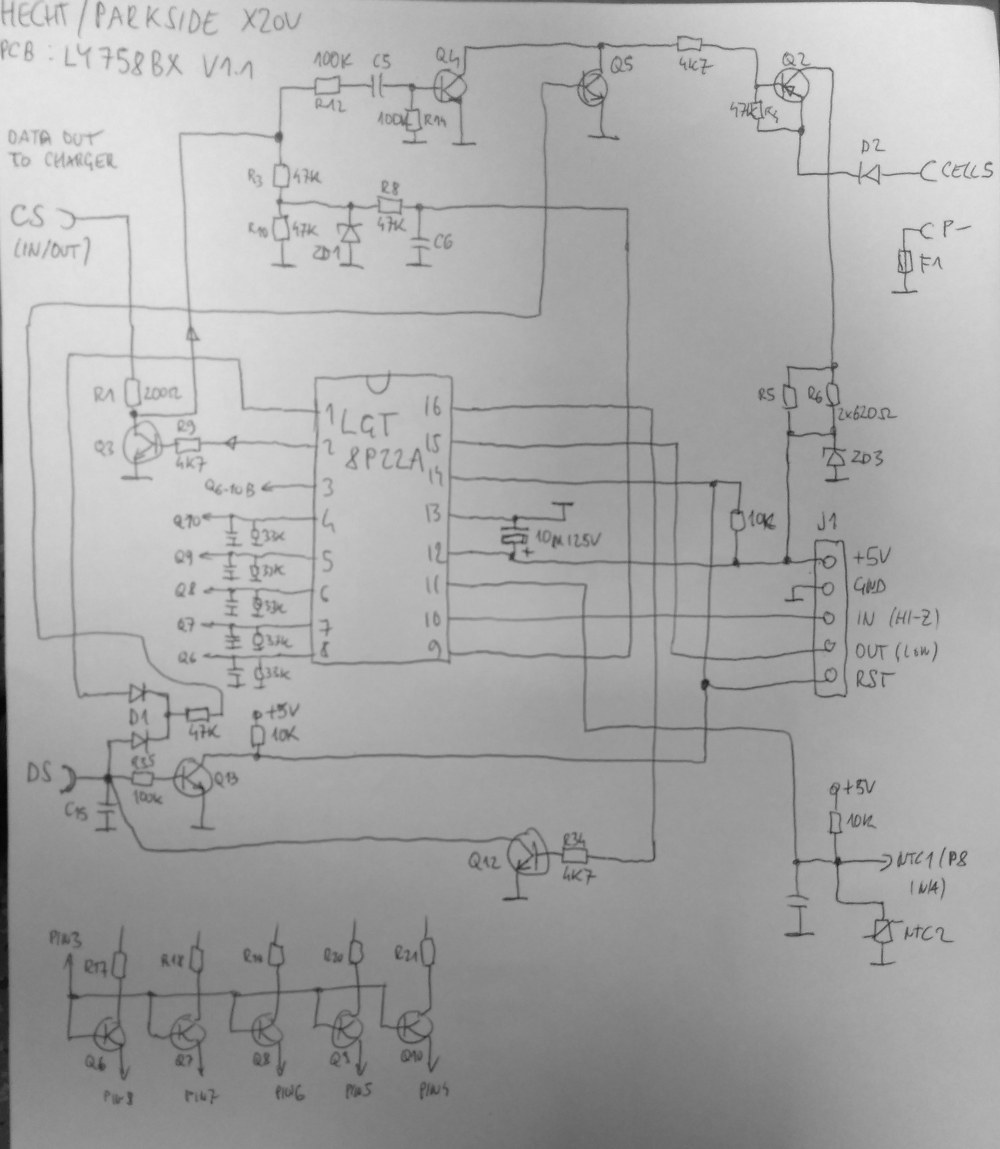 HECHT/PARKSIDE X20V
PCB: LY758BX V1.1
DATA OUT
TO CHARGER
CS
(IN/OUT)
100K C5 Q4
R12
100K R14
Q5
4K7
Q2
47K R4
D2
CELLS
P-
F1
R3 47K
R8
47K
R10 47K
ZD1
C6
R1 200Ω
Q3
R9
4K7
LGT
8P22A
1
2
3
4
5
6
7
8
16
15
14
13
12
11
10
9
Q6-10B
Q10
33K
Q9
33K
Q8
33K
Q7
33K
Q6
33K
10M 25V
+
10K
R5
R6
2x620Ω
ZD3
J1
+5V
GND
IN (HI-Z)
OUT (LOW)
RST
D1
47K
+5V
10K
DS
R35
100K
C15
Q13
Q12
R34
4K7
+5V
10K
NTC1/(P8
IN/A)
NTC2
PIN3
R17
R18
R19
R20
R21
Q6
Q7
Q8
Q9
Q10
PIN8
PIN7
PIN6
PIN5
PIN4